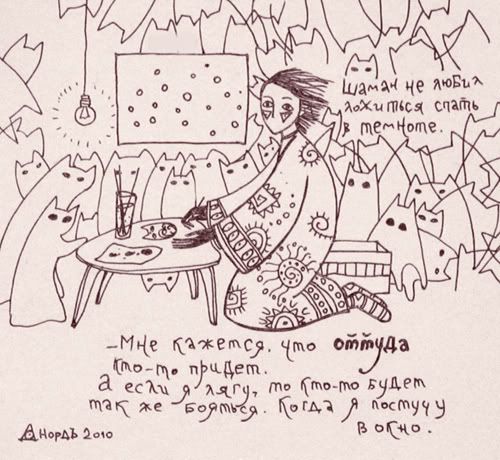 Шаман не любил
ложиться спать
в темноте.
– Мне кажется, что оттуда
кто-то придет.
А если я лягу, то кто-то будет
так же бояться. Когда я постучу
в окно.
НордЪ 2010